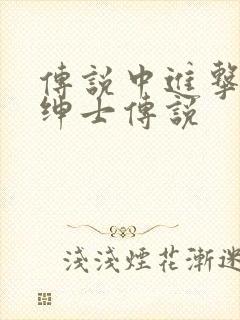 傳說中進擊
紳士傳說
淺淺煙花漸迷